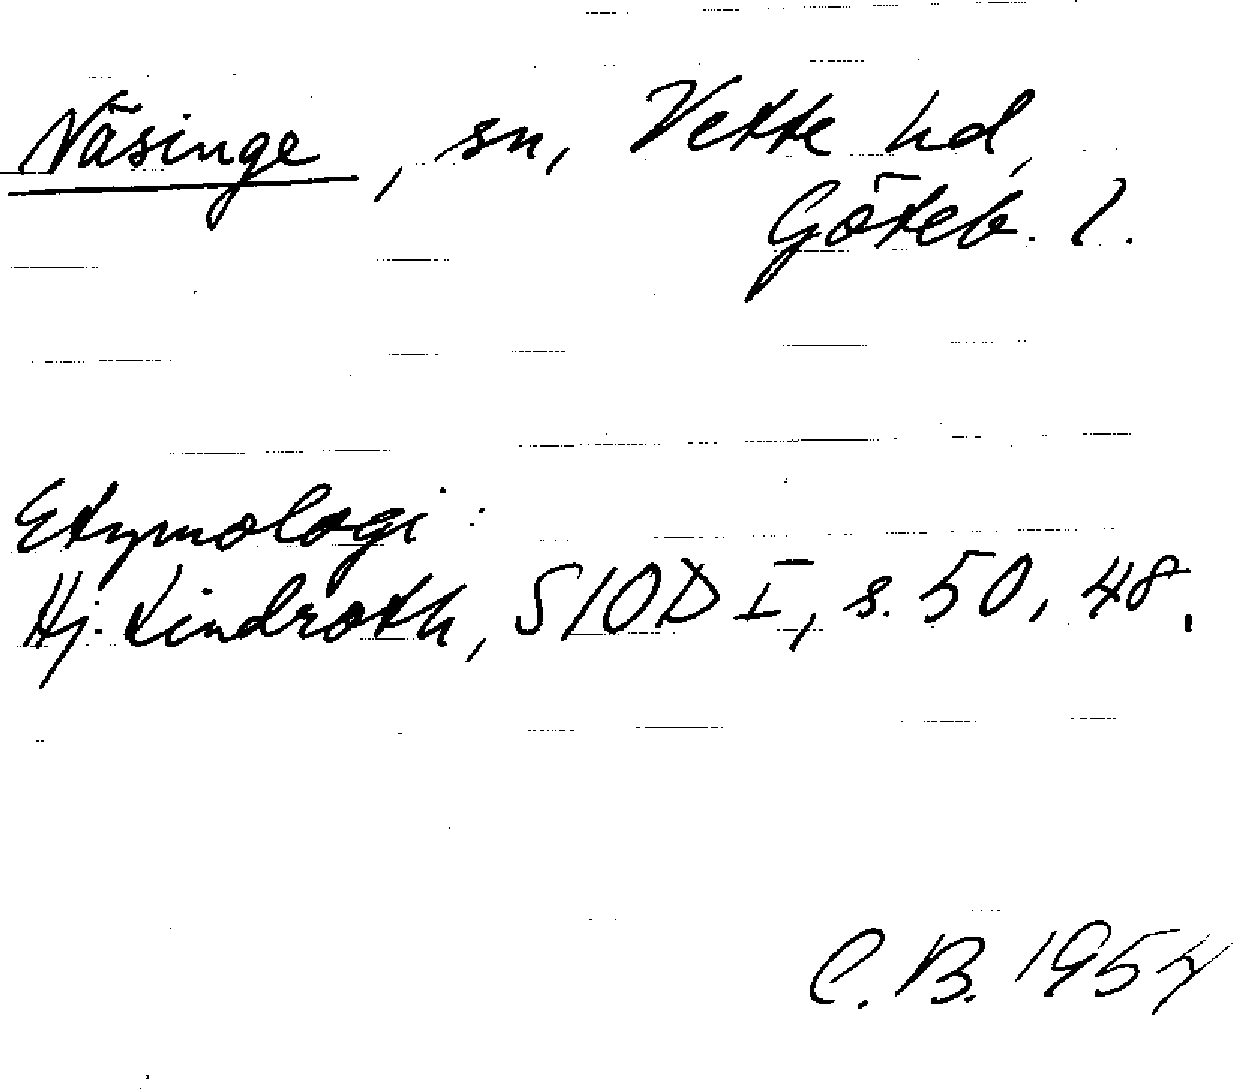 Näsinge, sn, Vette hd,
Göteb. l.
Etymologi:
Hj. Lindroth, SIOD I, s. 50, 48.
C. B. 1954